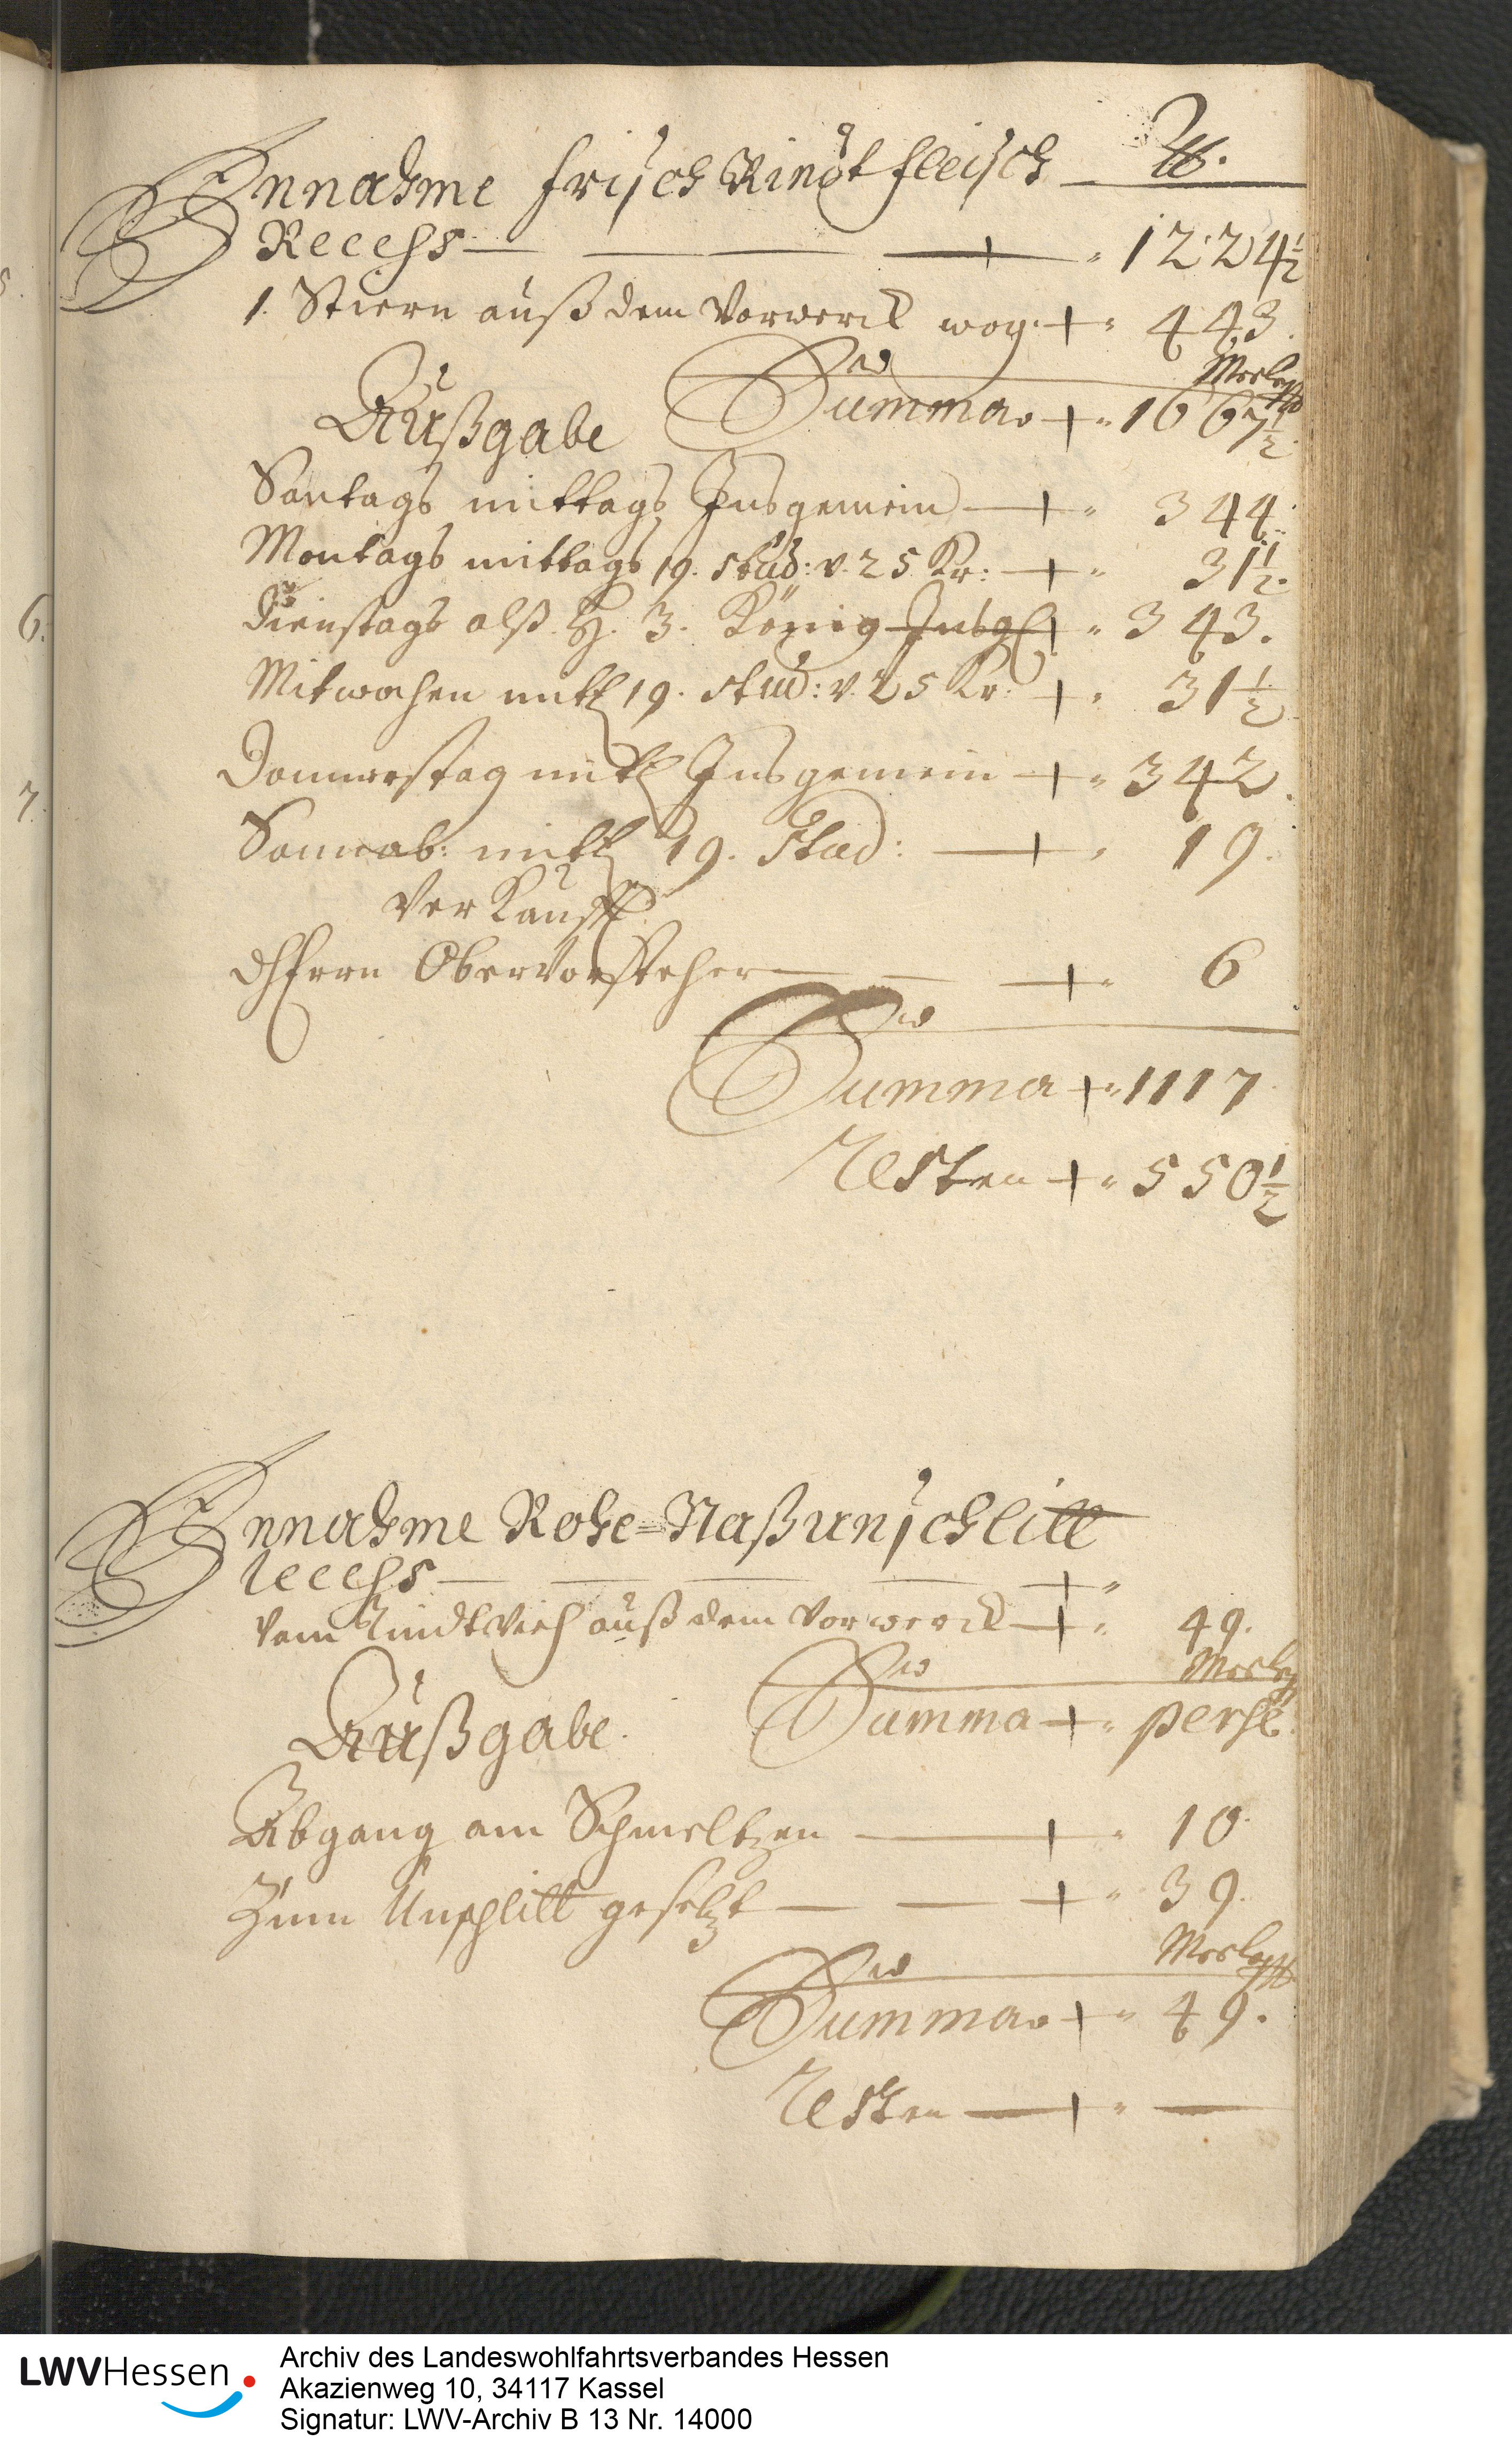 Einnahme frisch Rindt fleisch ℔.
Recess — — + „ 1224½
1. Stiern auß dem Vorwerck wog + „ 443.
Summa + „ 1667½
Außgabe
Sontags mittags Insgemein — + „ 344.
Montags mittags 19. stud: v. 25 Kr: + „ 31½.
Dienstags alß H. 3. König Insg + „ 343.
Mitwochen mitt 19. stud: v. 25 Kr: + „ 31½
Donnerstag mitt Insgemein + „ 342.
Sonnab: mitt 19. Stud: — + „ 19.
Verkaufft
H Herrn Obervorsteher — — + „ 6
Summa + „ 1117
Resten + „ 550½
Einnahme Rohe=Naßunschlitt
Recess — — — — + „
Vom Rindtvieh auß dem Vorwerck + „ 49.
Summa + „ perse
Außgabe.
Abgang am Schmeltzen — + „ 10.
Zum Unschlitt gesetzt — — + „ 39.
Summa + „ 49.
Resten — + „ —
6.
7.
LWVHessen
Archiv des Landeswohlfahrtsverbandes Hessen
Akazienweg 10, 34117 Kassel
Signatur: LWV-Archiv B 13 Nr. 14000